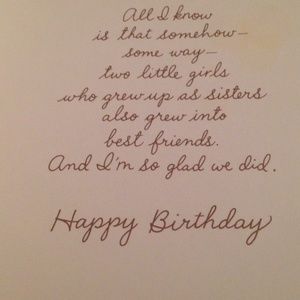 All I know
is that somehow—
some way—
two little girls
who grew up as sisters
also grew into
best friends.
And I'm so glad we did.
Happy Birthday